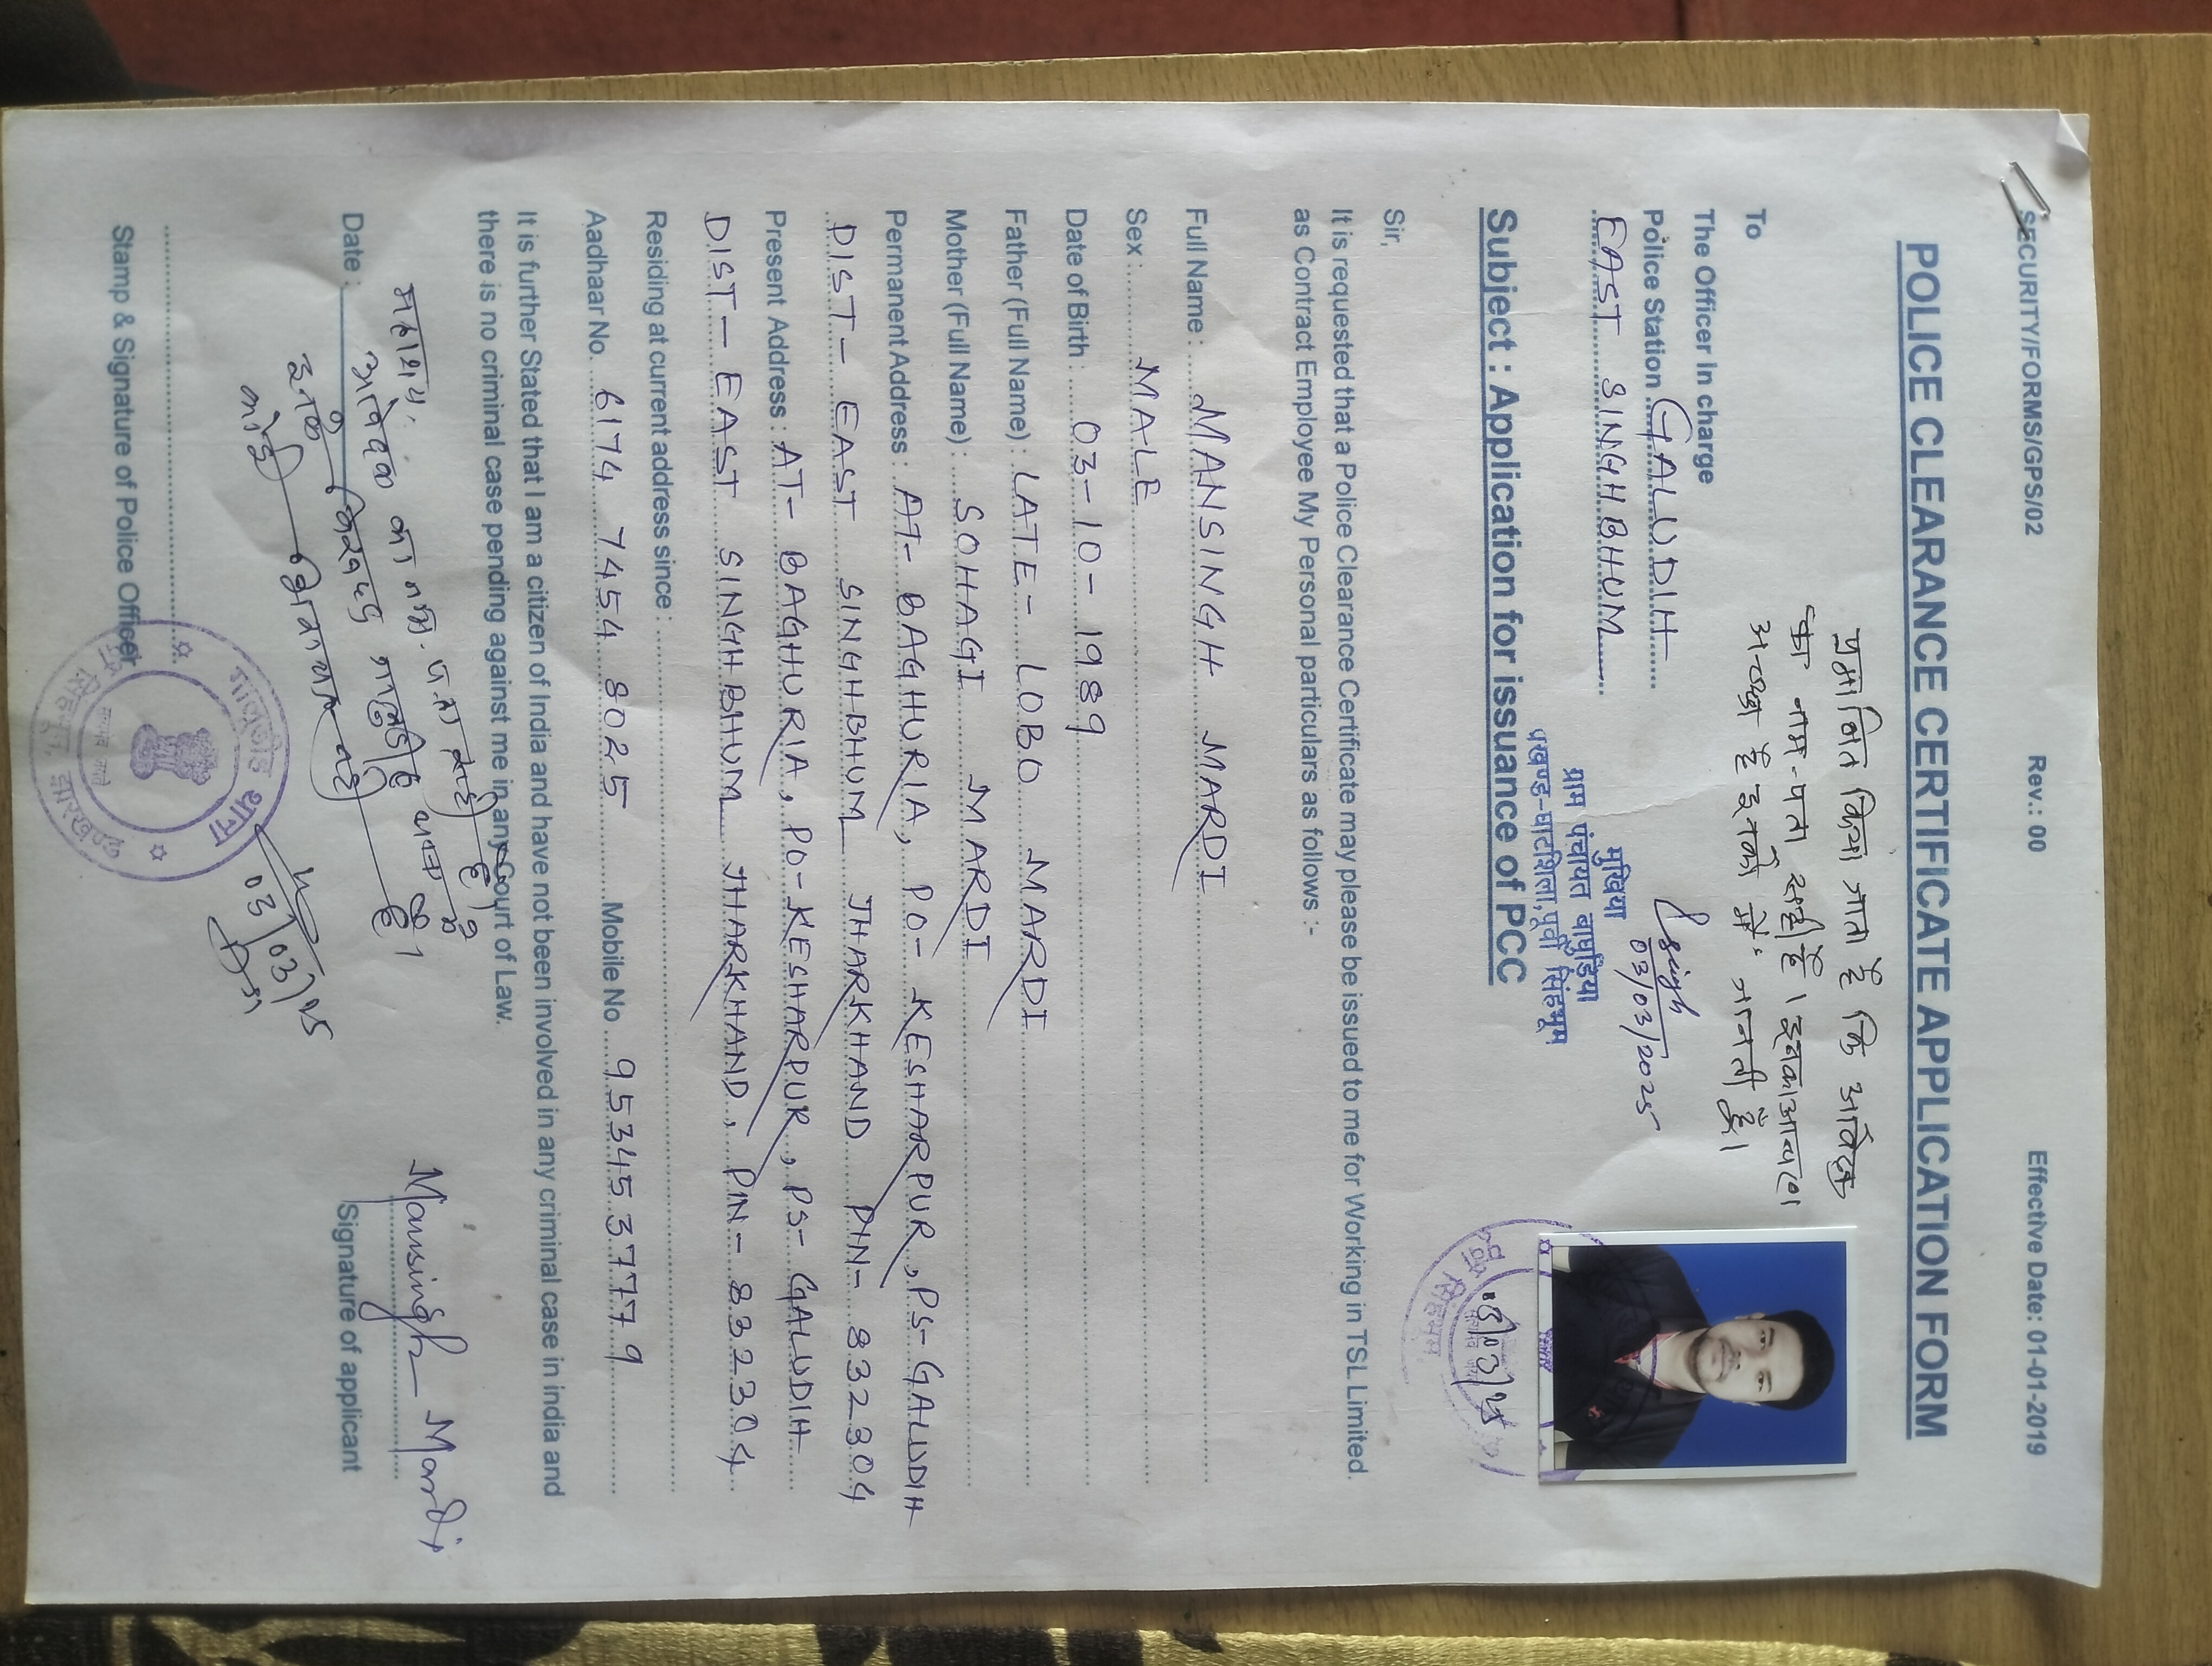 SECURITY/FORMS/GPS/02 Rev.: 00 Effective Date: 01-01-2019
POLICE CLEARANCE CERTIFICATE APPLICATION FORM
प्रमाणित किया जाता है कि आवेदक
का नाम-पता सही है। इनका आचरण
अच्छा है इनको मैं जानती हूँ।
To
The Officer In charge
Police Station GALUDIH
EAST SINGHBHUM
Singh
03/03/2025
मुखिया
ग्राम पंचायत बाघुड़िया
प्रखण्ड-घाटशिला, पूर्वी सिंहभूम
Subject : Application for issuance of PCC
Sir,
It is requested that a Police Clearance Certificate may please be issued to me for Working in TSL Limited.
as Contract Employee My Personal particulars as follows :-
Full Name : MANSINGH MARDI
Sex : MALE
Date of Birth : 03-10-1989
Father (Full Name) : LATE- LOBO MARDI
Mother (Full Name) : SOHAGI MARDI
Permanent Address : AT- BAGHURIA, PO- KESHARPUR, PS- GALUDIH
DIST- EAST SINGHBHUM JHARKHAND PIN- 832304
Present Address : AT- BAGHURIA, PO- KESHARPUR, PS- GALUDIH
DIST- EAST SINGHBHUM JHARKHAND, PIN- 832304
Residing at current address since :
Aadhaar No. 6174 7454 8025 Mobile No. 9534537779
It is further Stated that I am a citizen of India and have not been involved in any criminal case in india and
there is no criminal case pending against me in any Court of Law.
महाशय,
आवेदक का नाम पता सही है।
Mansingh Mardi
Date :
Signature of applicant
03/03/25
Stamp & Signature of Police Officer
गालुडीह थाना